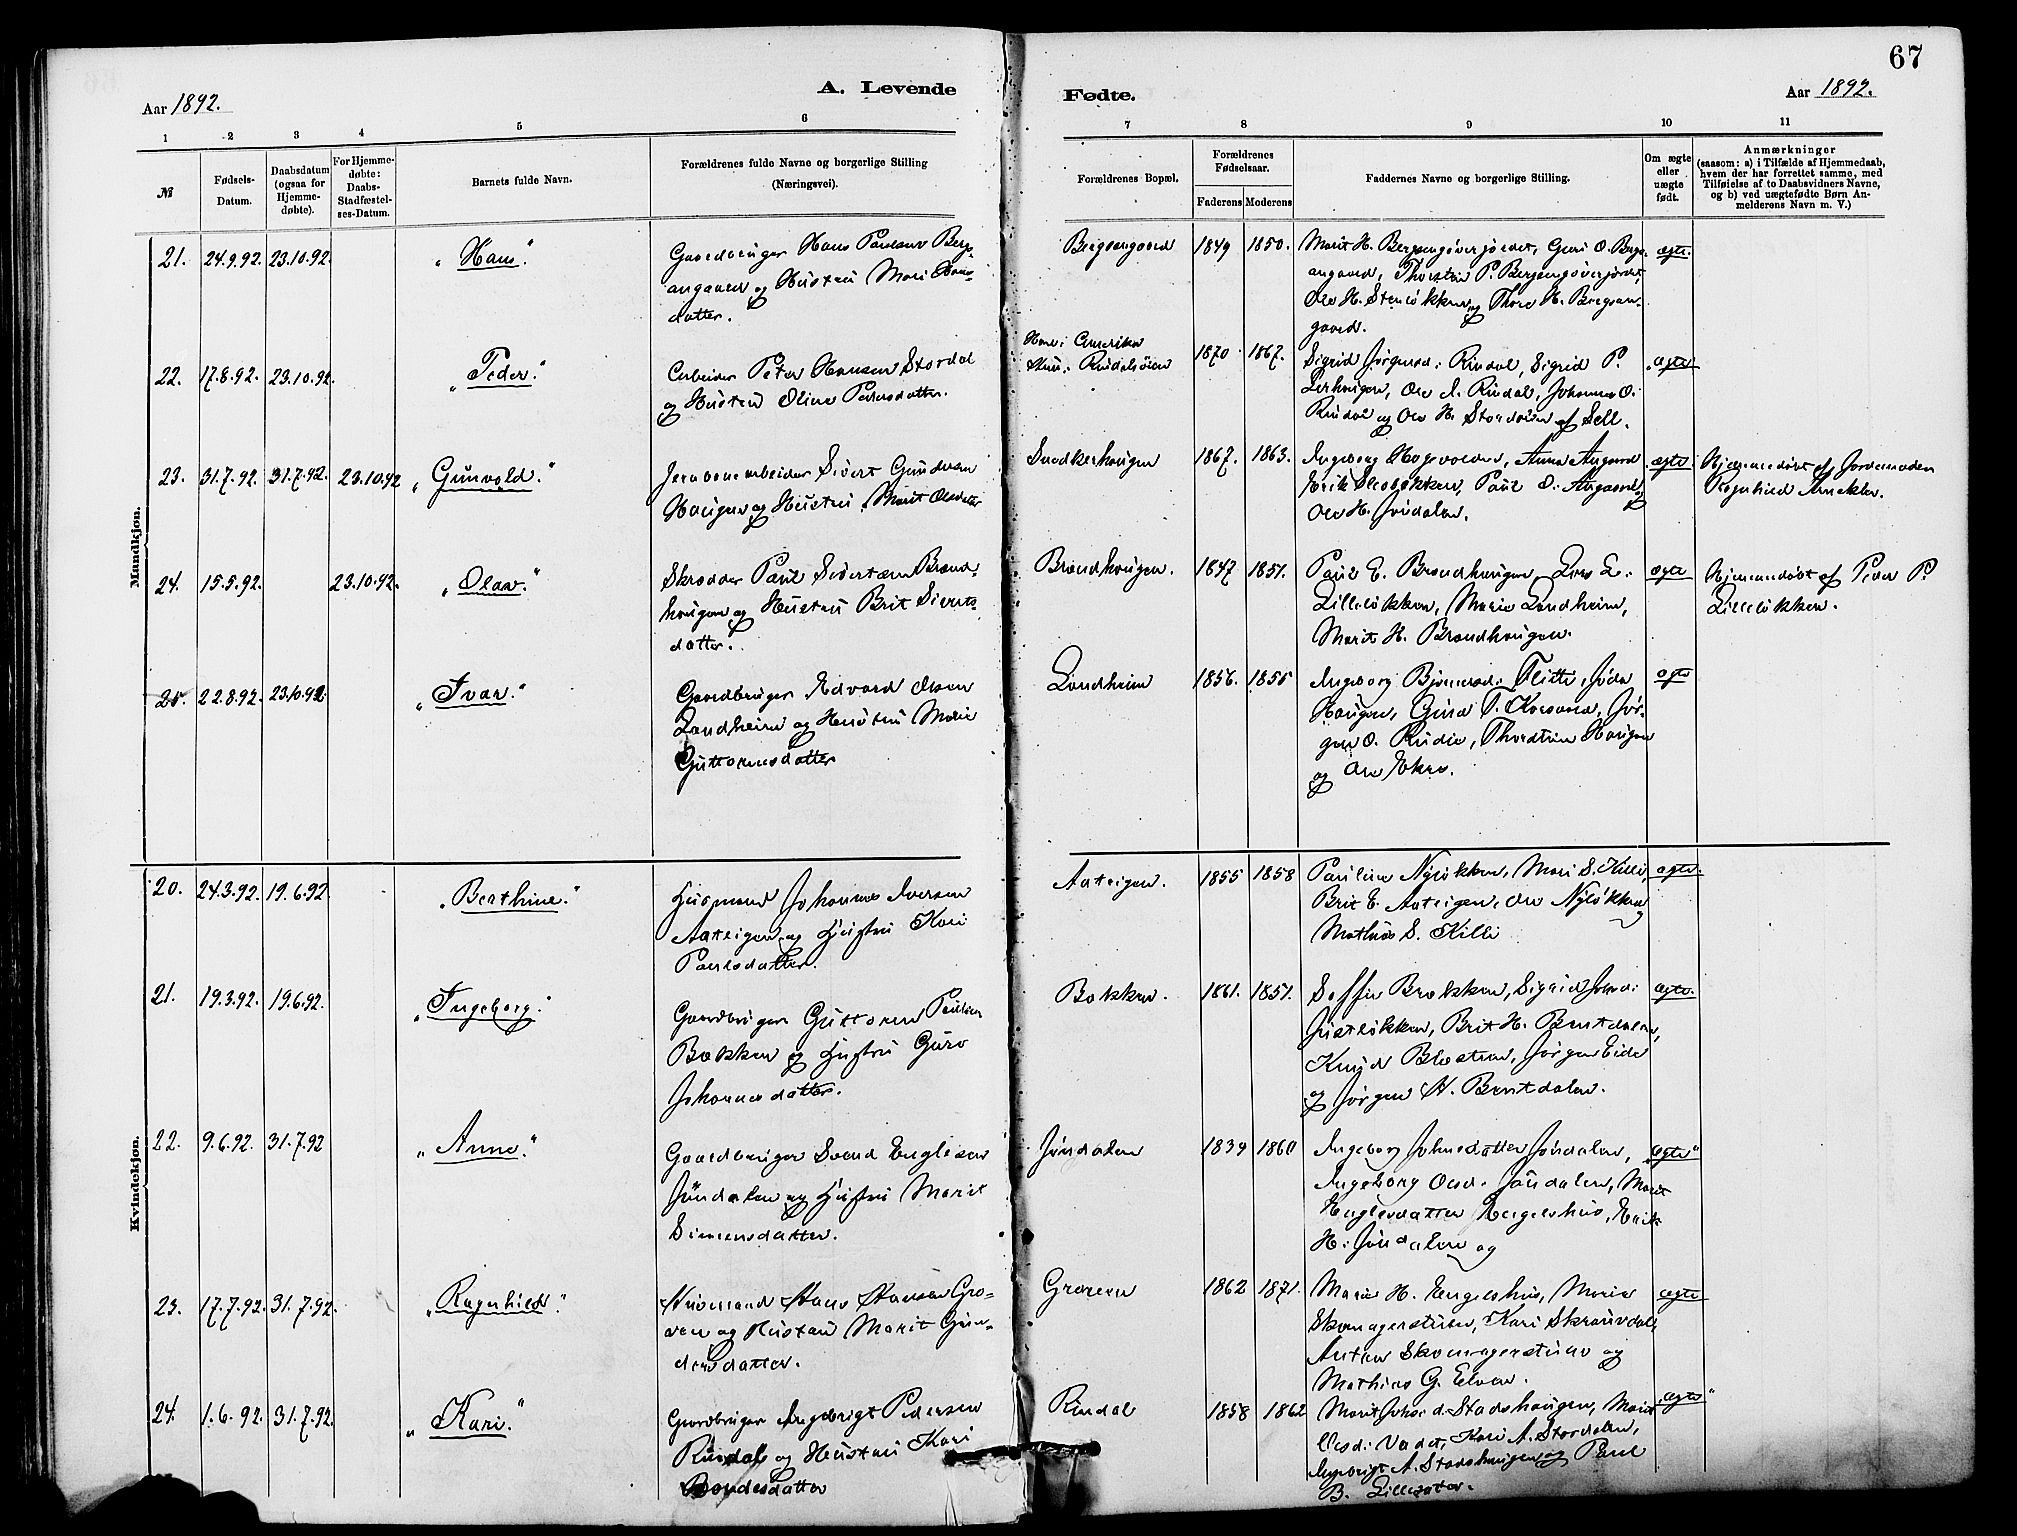 67
Aar 1892.
A. Levende
Fødte.
Aar 1892.
1 2 3 4 5 6 7 8 9 10 11
№
Fødsels-
Datum.
Daabsdatum
(ogsaa for
Hjemme-
døbte).
For Hjemme-
døbte:
Daabs-
Stadfæstel-
ses-Datum.
Barnets fulde Navn.
Forældrenes fulde Navne og borgerlige Stilling
(Næringsvei).
Forældrenes Bopæl.
Forældrenes
Fødselsaar.
Faderens Moderens
Faddernes Navne og borgerlige Stilling.
Om ægte
eller
uægte
født.
Anmærkninger
(saasom: a) i Tilfælde af Hjemmedaab,
hvem der har forrettet samme, med
Tilføielse af to Daabsvidners Navne,
og b) ved uægtefødte Børn An-
melderens Navn m. V.)
Mandkjøn.
21. 24.9.92. 23.10.92. "Hans"
Gaardbruger Hans Paulsen Berg-
angaard og Hustru Mari Hans-
datter.
Bergsengaard 1849 1850.
Marit H. Bergsengøverjordet, Guri O. Berg-
angaard, Thorstein P. Bergengøverjordet,
Ole H. Stenløkken og Thore H. Bergsen-
gaard.
ægte.
22. 17.8.92. 23.10.92. "Peder."
Arbeider Peter Hansen Stordal
og Hustru Oline Pedersdatter.
Han i Amerika
Hun i Rindalsøien
1870 1867.
Sigrid Jørgensd: Rindal, Sigrid P.
Lerhougen, Ole J. Rindal, Johannes O.
Rindal og Ole H. Stordalen af Sell.
ægte
23. 31.7.92. 31.7.92. 23.10.92 "Gunvald."
Jernbanearbeider Sivert Gundersen
Haugen og Hustru Marit Olsdatter
Snedkerhougen 1867. 1863.
Ingeborg Hagevolden, Anna Angaard
Erik Sletløkken, Paul O. Angaard og
Ole H. Jøndalen.
ægte.
Hjemmedøbt af Jordemoder
Ragnhild Arneklev.
24. 15.5.92. 23.10.92. "Olav."
Skrædder Paul Sivertsen Brand-
hougen og Hustru Brit Siverts-
datter.
Brandhougen. 1847 1851.
Paul E. Brandhougen, Lars L.
Lilleløkken, Marie Londheim,
Marit H. Brandhougen.
ægte
Hjemmedøbt af Peder P.
Lilleløkken.
25. 22.8.92. 23.10.92. "Ivar."
Gaardbruger Edvard Olsen
Londheim og Hustru Marie
Guttormsdatter
Londheim 1856. 1855
Ingeborg Bjørnsd: Flitti, Jøda
Haugen, Guri T. Korsvold, Jør-
gen O. Rudie, Thorstein Haugen
og Ole Ekre.
ægte
Kvindekjøn.
20. 24.3.92. 19.6.92. "Berthine."
Husmand Johannes Iversen
Aateigen og Hustru Kari
Paulsdatter.
Aateigen. 1855 1858
Pauline Nyløkken, Mari S. Killi,
Brit E. Aateigen, Ole Nyløkken og
Mathias S. Killi
ægte.
21. 19.3.92. 19.6.92. "Ingeborg."
Gaardbruger Guttorm Paulsen
Bakken og Hustru Guro
Johannesdatter.
Bakken. 1861. 1851.
Soffie Brækken, Sigrid Johsd:
Justløkken, Brit H. Bentdalen,
Knud Bleostuen, Jørgen Eide
og Jørgen H. Bentdalen.
ægte.
22. 9.6.92. 31.7.92 "Anne."
Gaardbruger Svend Englesen
Jøndalen og Hustru Marit
Simensdatter.
Jøndalen 1839 1860
Ingeborg Johnsdatter Jøndalen,
Ingeborg Olsd. Jøndalen, Marit
Englesdatter Engelshus, Erik
H. Jøndalen og
"ægte"
23. 17.7.92. 31.7.92. "Ragnhild."
Husmand Hans Hansen Gro-
ven og Hustru Marit Gun-
dersdatter.
Groven 1862 1871.
Marie H. Engelshus, Marie
Skomagerstuen, Kari Skrauvdal,
Anton Skomagerstuen og
Mathias G. Elven.
ægte
24. 1.6.92. 31.7.92. "Kari."
Gaardbruger Ingebrigt Pedersen
Rindal og Hustru Kari
Baardsdatter
Rindal 1858 1862
Marit Johs: d. Stadshaugen, Marit
Olsd: Vadet, Kari A. Stordalen,
Ingebrigt A. Stadshaugen og Paul
B. Lillesæter.
"ægte"